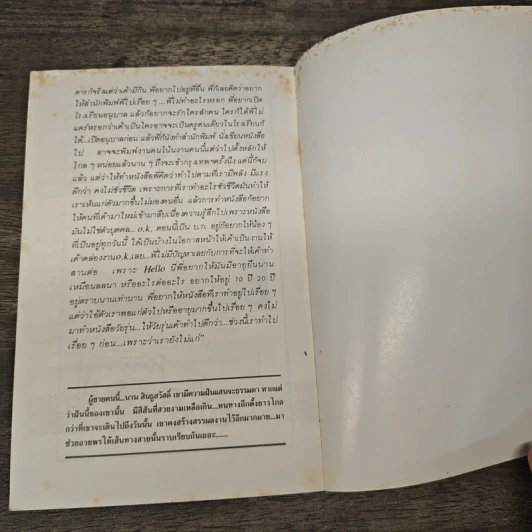 ดารก็จริงแต่ว่าเค้ามีกิน พี่อยากไปอยู่ที่อื่น พี่ก็เลยคิดว่าอยาก
ให้สำนักพิมพ์พี่ไปเรื่อย ๆ ... พี่ไม่ทำอะไรหรอก พี่อยากเปิด
โรงเรียนอนุบาล แล้วก็อยากจะรักใครสักคน ใครก็ได้พี่ไม่
แคร์หรอกว่าเค้าเป็นใครอาจจะเป็นครูคนเดียวในโรงเรียนก็
ได้..เปิดอนุบาลก่อน แล้วพี่ก็นั่งทำสำนักพิมพ์ นั่งเขียนหนังสือ
ไป อาจจะพิมพ์งานคนโน้นงานคนนี้แต่ว่าไปตั้งหลักให้
ไกล ๆ หน่อยแล้วนาน ๆ ถึงจะเข้ากรุงเทพฯครั้งนึง แค่นี้ก็จบ
แล้ว แต่ว่าให้ทำหนังสือพี่คิดว่าทำไปตามที่เรามีพลัง มีแรง
ดีกว่า คงไม่ชั่วชีวิต เพราะการที่เราทำอะไรชั่วชีวิตมันทำให้
เราเห็นแก่ตัวมากขึ้นไม่มองคนอื่น แล้วการทำหนังสือก็อยาก
ให้คนที่เค้ามาใหม่เข้ามาสืบเนื่องความรู้สึกไปเพราะหนังสือ
มันไม่ใช่ตัวบุคคล... o.k. ตอนนี้เป็น บ.ก. อยู่ก็อยากให้น้อง ๆ
ที่เป็นอยู่ทุกวันนี้ ได้เป็นบ้างในโอกาสหน้าให้เค้าเป็นงานให้
เค้าคล่องงานo.k.เลย...พี่ไม่มีปัญหาเลยกับการที่จะให้เค้าทำ
สานต่อ เพราะ Hello นี่พี่อยากให้มันมีอายุยืนนาน
เหมือนลลนา หรืออะไรต่ออะไร อยากให้อยู่ 10 ปี 20 ปี
อยู่ตราบนานเท่านาน พี่อยากให้หนังสือที่เราทำอยู่ไปเรื่อย ๆ
แต่ว่าไอ้ตัวเราพอแก่ตัวไปหรืออายุมากขึ้นไปเรื่อย ๆ คงไม่
มาทำหนังสือวัยรุ่น...ให้วัยรุ่นเค้าทำไปดีกว่า...ช่วงนี้เราทำไป
เรื่อย ๆ ก่อน...เพราะว่าเรายังไม่แก่"
ผู้ชายคนนี้...นาน สินธุสวัสดิ์ เขามีความฝันแสนจะธรรมดา หากแต่
ว่าฝันนี้ของเขานั้น มีสีสันที่สวยงามเหลือเกิน...หนทางอีกตั้งยาวไกล
กว่าที่เขาจะเดินไปถึงวันนั้น เขาคงสร้างสรรผลงานไว้อีกมากมาย...มา
ช่วยอวยพรให้เส้นทางสายนั้นราบเรียบกันเถอะ......